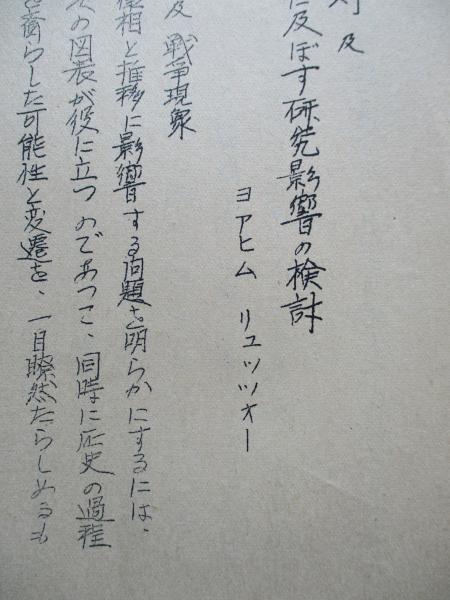 及
に及ぼす研究影響の検討
ヨアヒム リュッツオー
及 戦争現象
相と推移に影響する問題を明らかにするには、
の図表が役に立つのであつて、同時に歴史の過程
を齎らした可能性と変遷を、一目瞭然たらしめるも